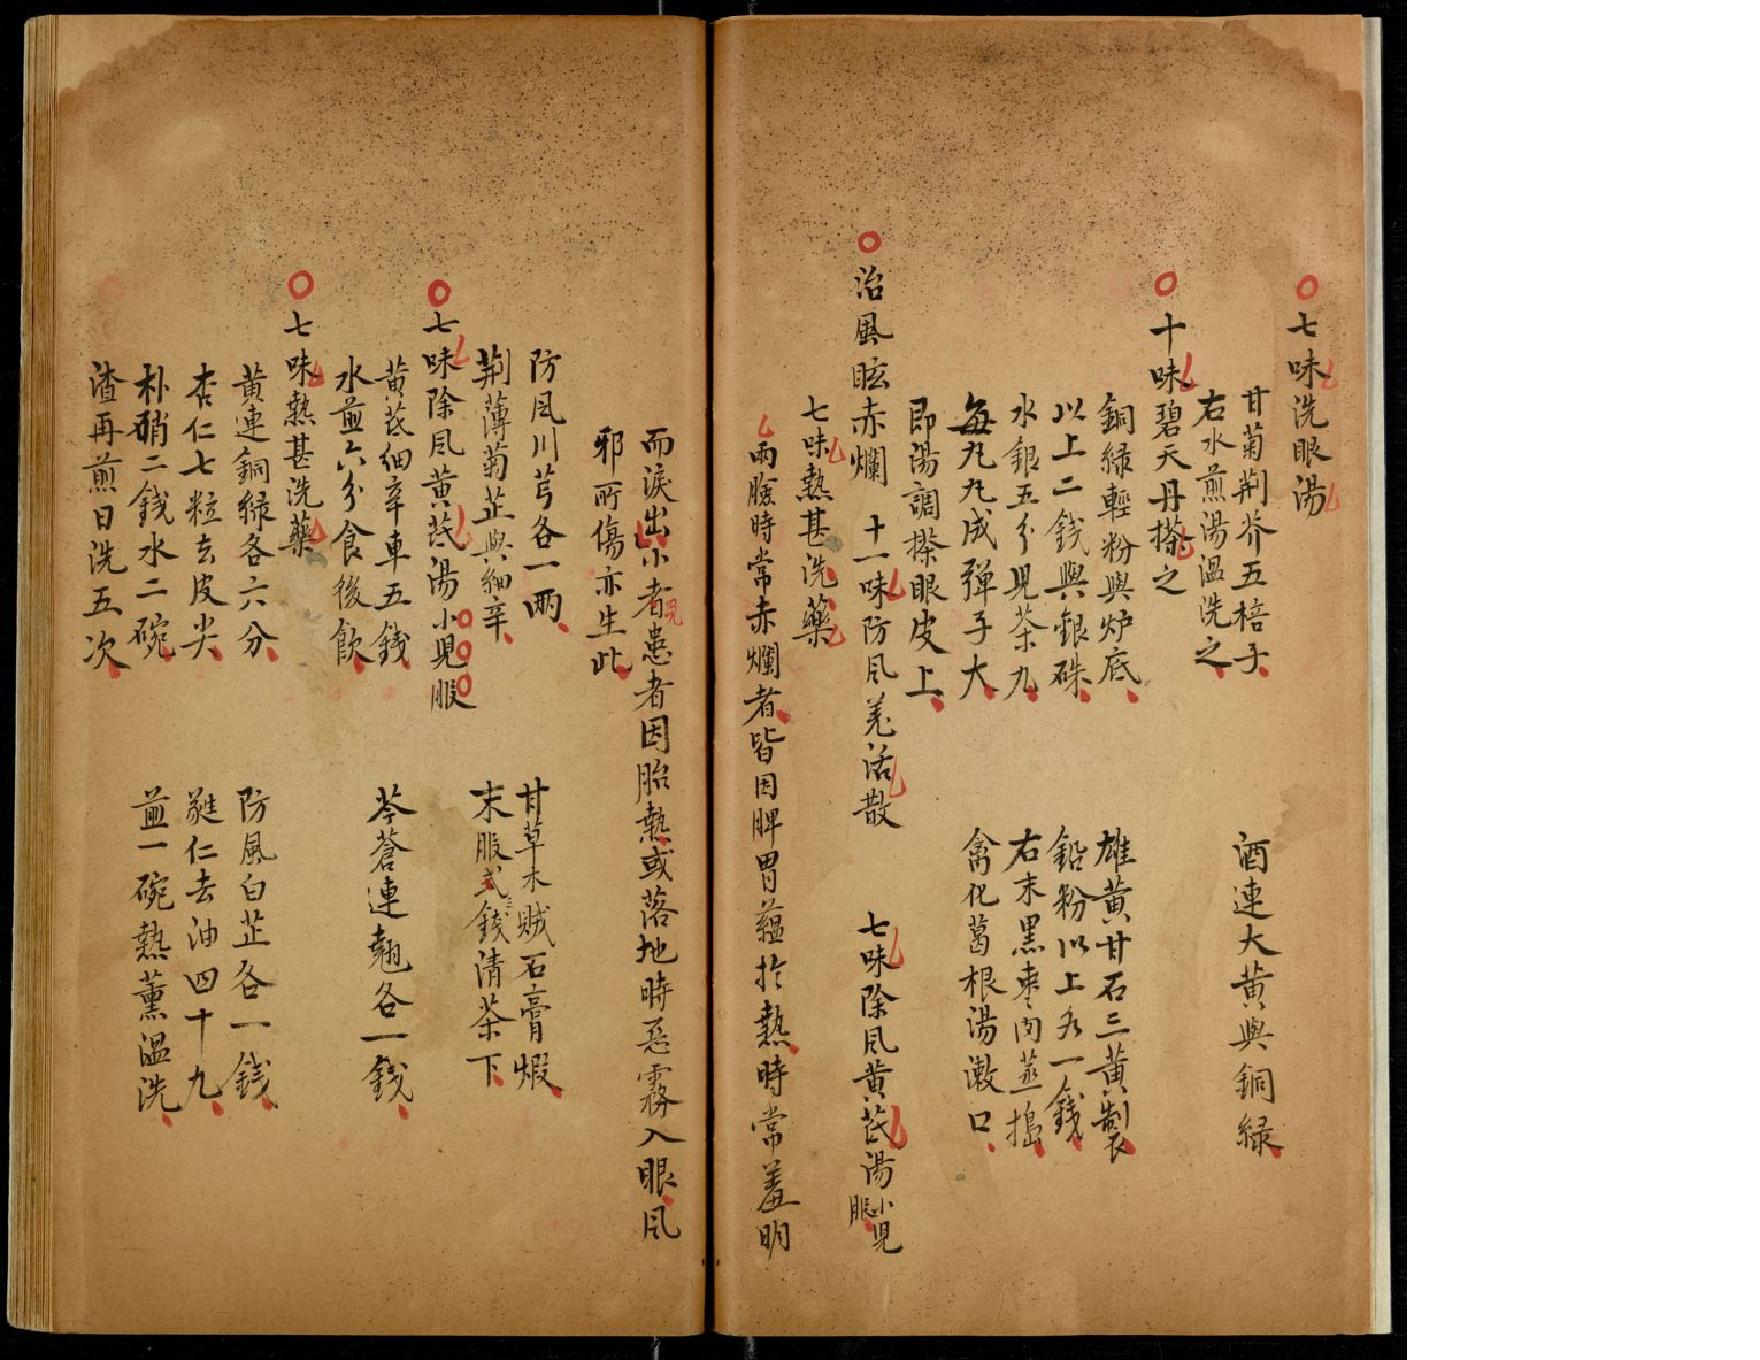 七味洗眼湯
甘菊荆芥五棓子　酒連大黄與銅緑
右水煎湯温洗之
十味碧天丹搽之
銅緑輕粉與炉底　雄黄甘石三黄製
以上二錢與銀硃　鉛粉以上各一錢
水銀五分見茶九　右末黒枣肉蒸搗
每九九成彈子大　禽化葛根湯漱口
即湯調搽眼皮上
治風眩赤爛　十一味防风羌活散　七味除风黄芪湯小児服
七味熱甚洗藥
両臉時常赤爛者皆因脾胃蘊於熱時常羞明
而淚出小者児患者因胎熱或落地時惡霧入眼风
邪所傷亦生此
防风川芎各一両　甘草木賊石膏煅
荆薄菊芷與細辛　末服式錢清茶下
七味除风黄芪湯小児服
黄芪細辛車五錢　芩蒼連翹各一錢
水煎六分食後飲
七味熱甚洗藥
黄連銅緑各六分　防風白芷各一錢
杏仁七粒去皮尖　蕤仁去油四十九
朴硝二錢水二碗　煎一碗熱薰温洗
渣再煎日洗五次